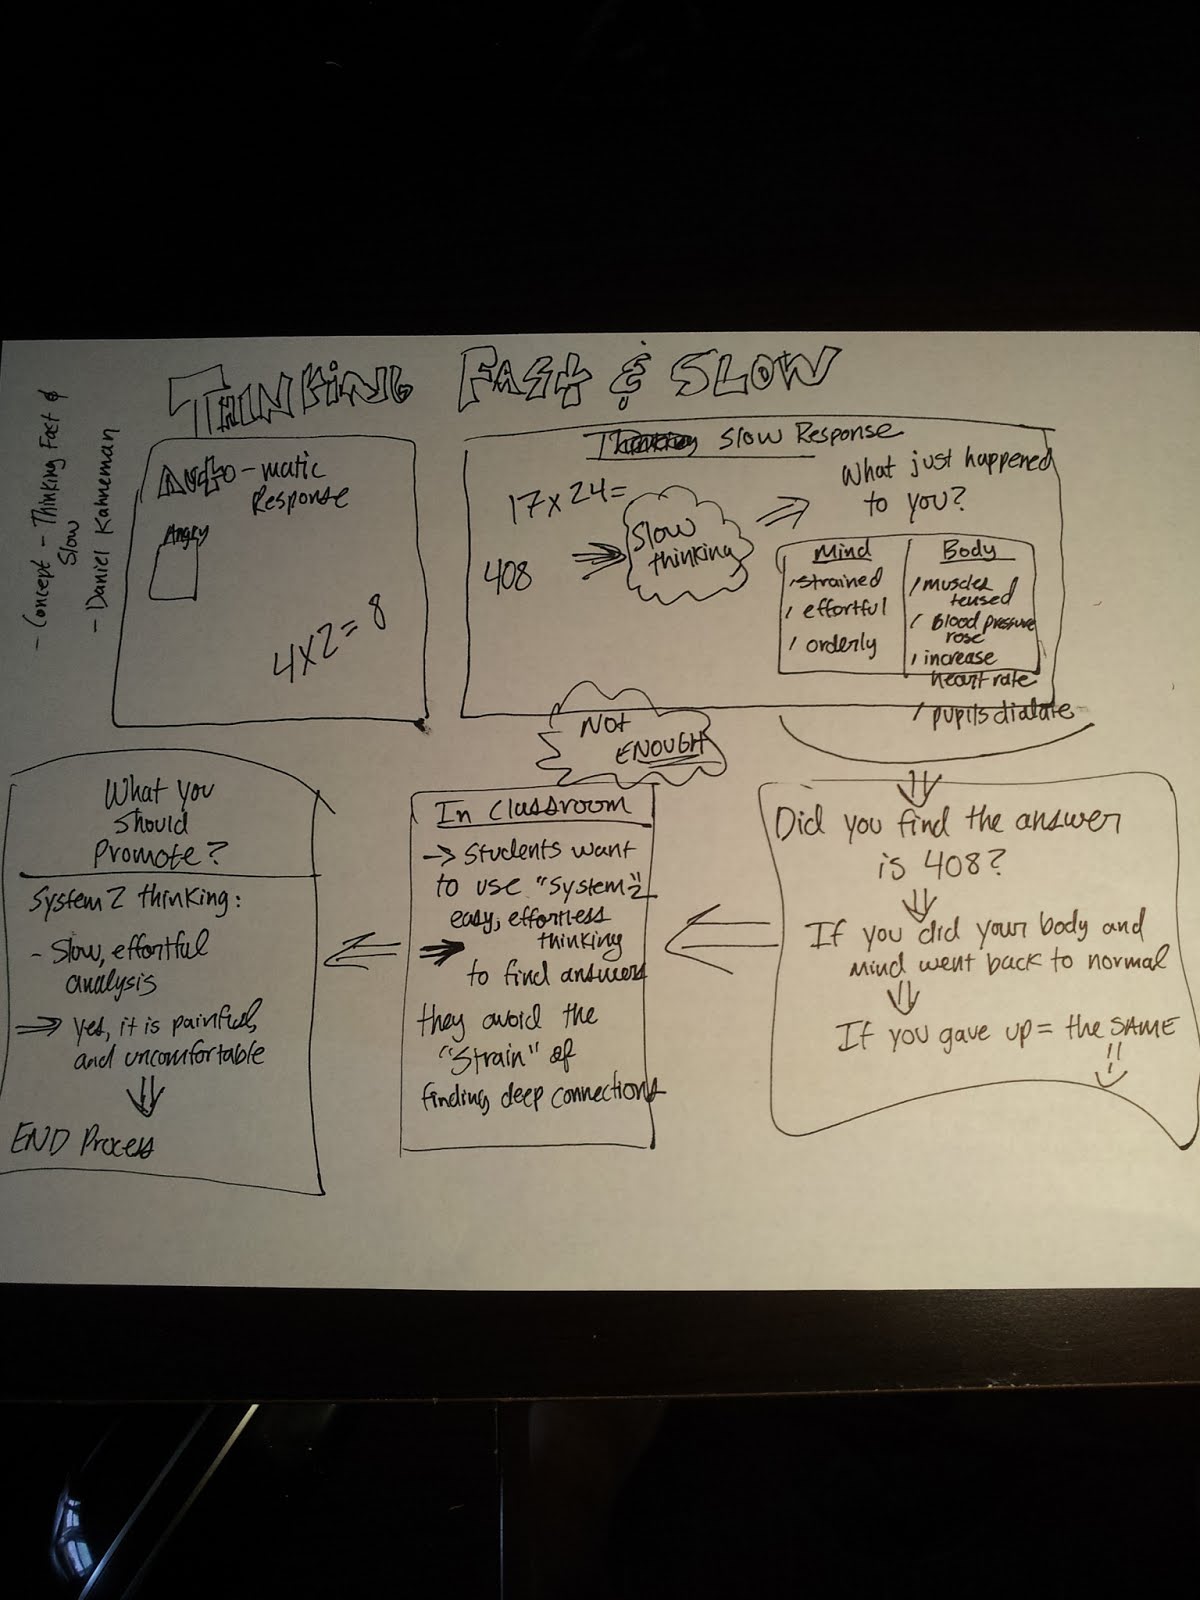 THINKING FAST & SLOW
- Concept - Thinking Fast &
Slow
- Daniel Kahneman
Auto-matic
Response
Angry
4x2=8
Slow Response
17x24=
408
Slow
thinking
What just happened
to you?
Mind
/strained
/ effortful
/ orderly
Body
/muscles
tensed
/ Blood pressure
rose
/ increase
heart rate
/ pupils dialate
Not
ENOUGH
Did you find the answer
is 408?
If you did your body and
mind went back to normal
If you gave up = the SAME
In Classroom
→ Students want
to use "System 2"
easy, effortless
thinking
to find answers
they avoid the
"Strain" of
finding deep connections
What you
should
Promote?
System 2 thinking:
- Slow, effortful
analysis
⇒ yes, it is painful,
and uncomfortable
END Process